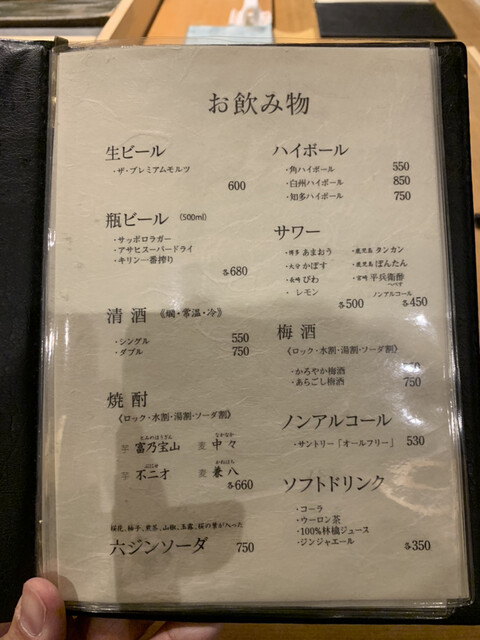 お飲み物
生ビール
・ザ・プレミアムモルツ
600
瓶ビール (500ml)
・サッポロラガー
・アサヒスーパードライ
・キリン一番搾り
各680
清酒 《燗・常温・冷》
・シングル 550
・ダブル 750
焼酎
《ロック・水割・湯割・ソーダ割》
とみのほうざん なかなか
芋 富乃宝山 麦 中々
ぶにせ かねはち
芋 不二才 麦 兼八
各660
桜花、柚子、煎茶、山椒、玉露、桜の葉が入った
六ジンソーダ 750
ハイボール
・角ハイボール 550
・白州ハイボール 850
・知多ハイボール 750
サワー
・博多 あまおう ・鹿児島 タンカン
・大分 かぼす ・鹿児島 ぽんたん
・長崎 びわ ・宮崎 平兵衛酢
へべす
・レモン ノンアルコール
各500 各450
梅酒
《ロック・水割・湯割・ソーダ割》
・かろやか梅酒
・あらごし梅酒 750
ノンアルコール
・サントリー「オールフリー」 530
ソフトドリンク
・コーラ
・ウーロン茶
・100%林檎ジュース
・ジンジャエール 各350